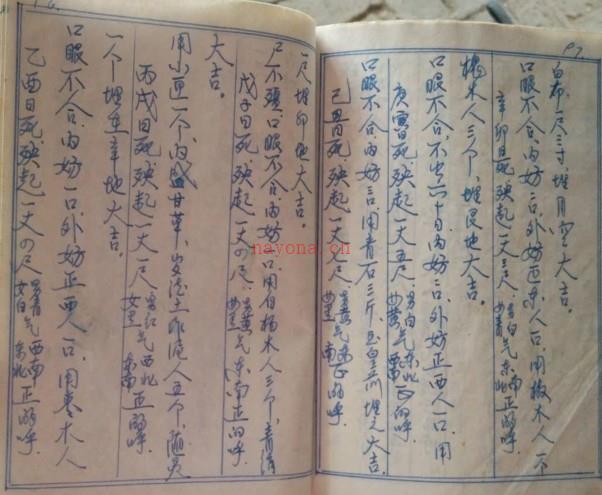 乙酉日死，殃起一丈の尺 男青气西南 女白 东北 正的呼
口眼不合，内妨一口，外妨正西人一口，用枣木人
一个埋在辛地大吉。
丙戌日死，殃起一丈一尺 男红气西北 女黑 东南 正的呼
用小匣一个，内盛甘草，岁德土作泥人五个，随灵
大吉。
戊子日死，殃起一丈の尺 气东南 正的呼
尸不殭，口眼不合，内妨一口，用白杨木人三个，青
一尺埋卯地大吉。
己丑日死，殃起一丈一尺 气 女黑 南 正的呼
口眼不合，内妨三口，用青石三斤，玉皇前埋之大吉。
庚寅日死，殃起一丈五尺 男白气东北 女黄 西南 正的呼
口眼不合，不出一十日内妨二口，外妨正西人一口，用
槐木人三个，埋艮地大吉。
辛卯日死，殃起一丈三尺 男白气东南 女青 西北 正的呼
口眼不合，内妨一口，外妨正东人一口，用椒木人一个
白布一尺三寸，埋月空大吉。
P7
nayona.cn